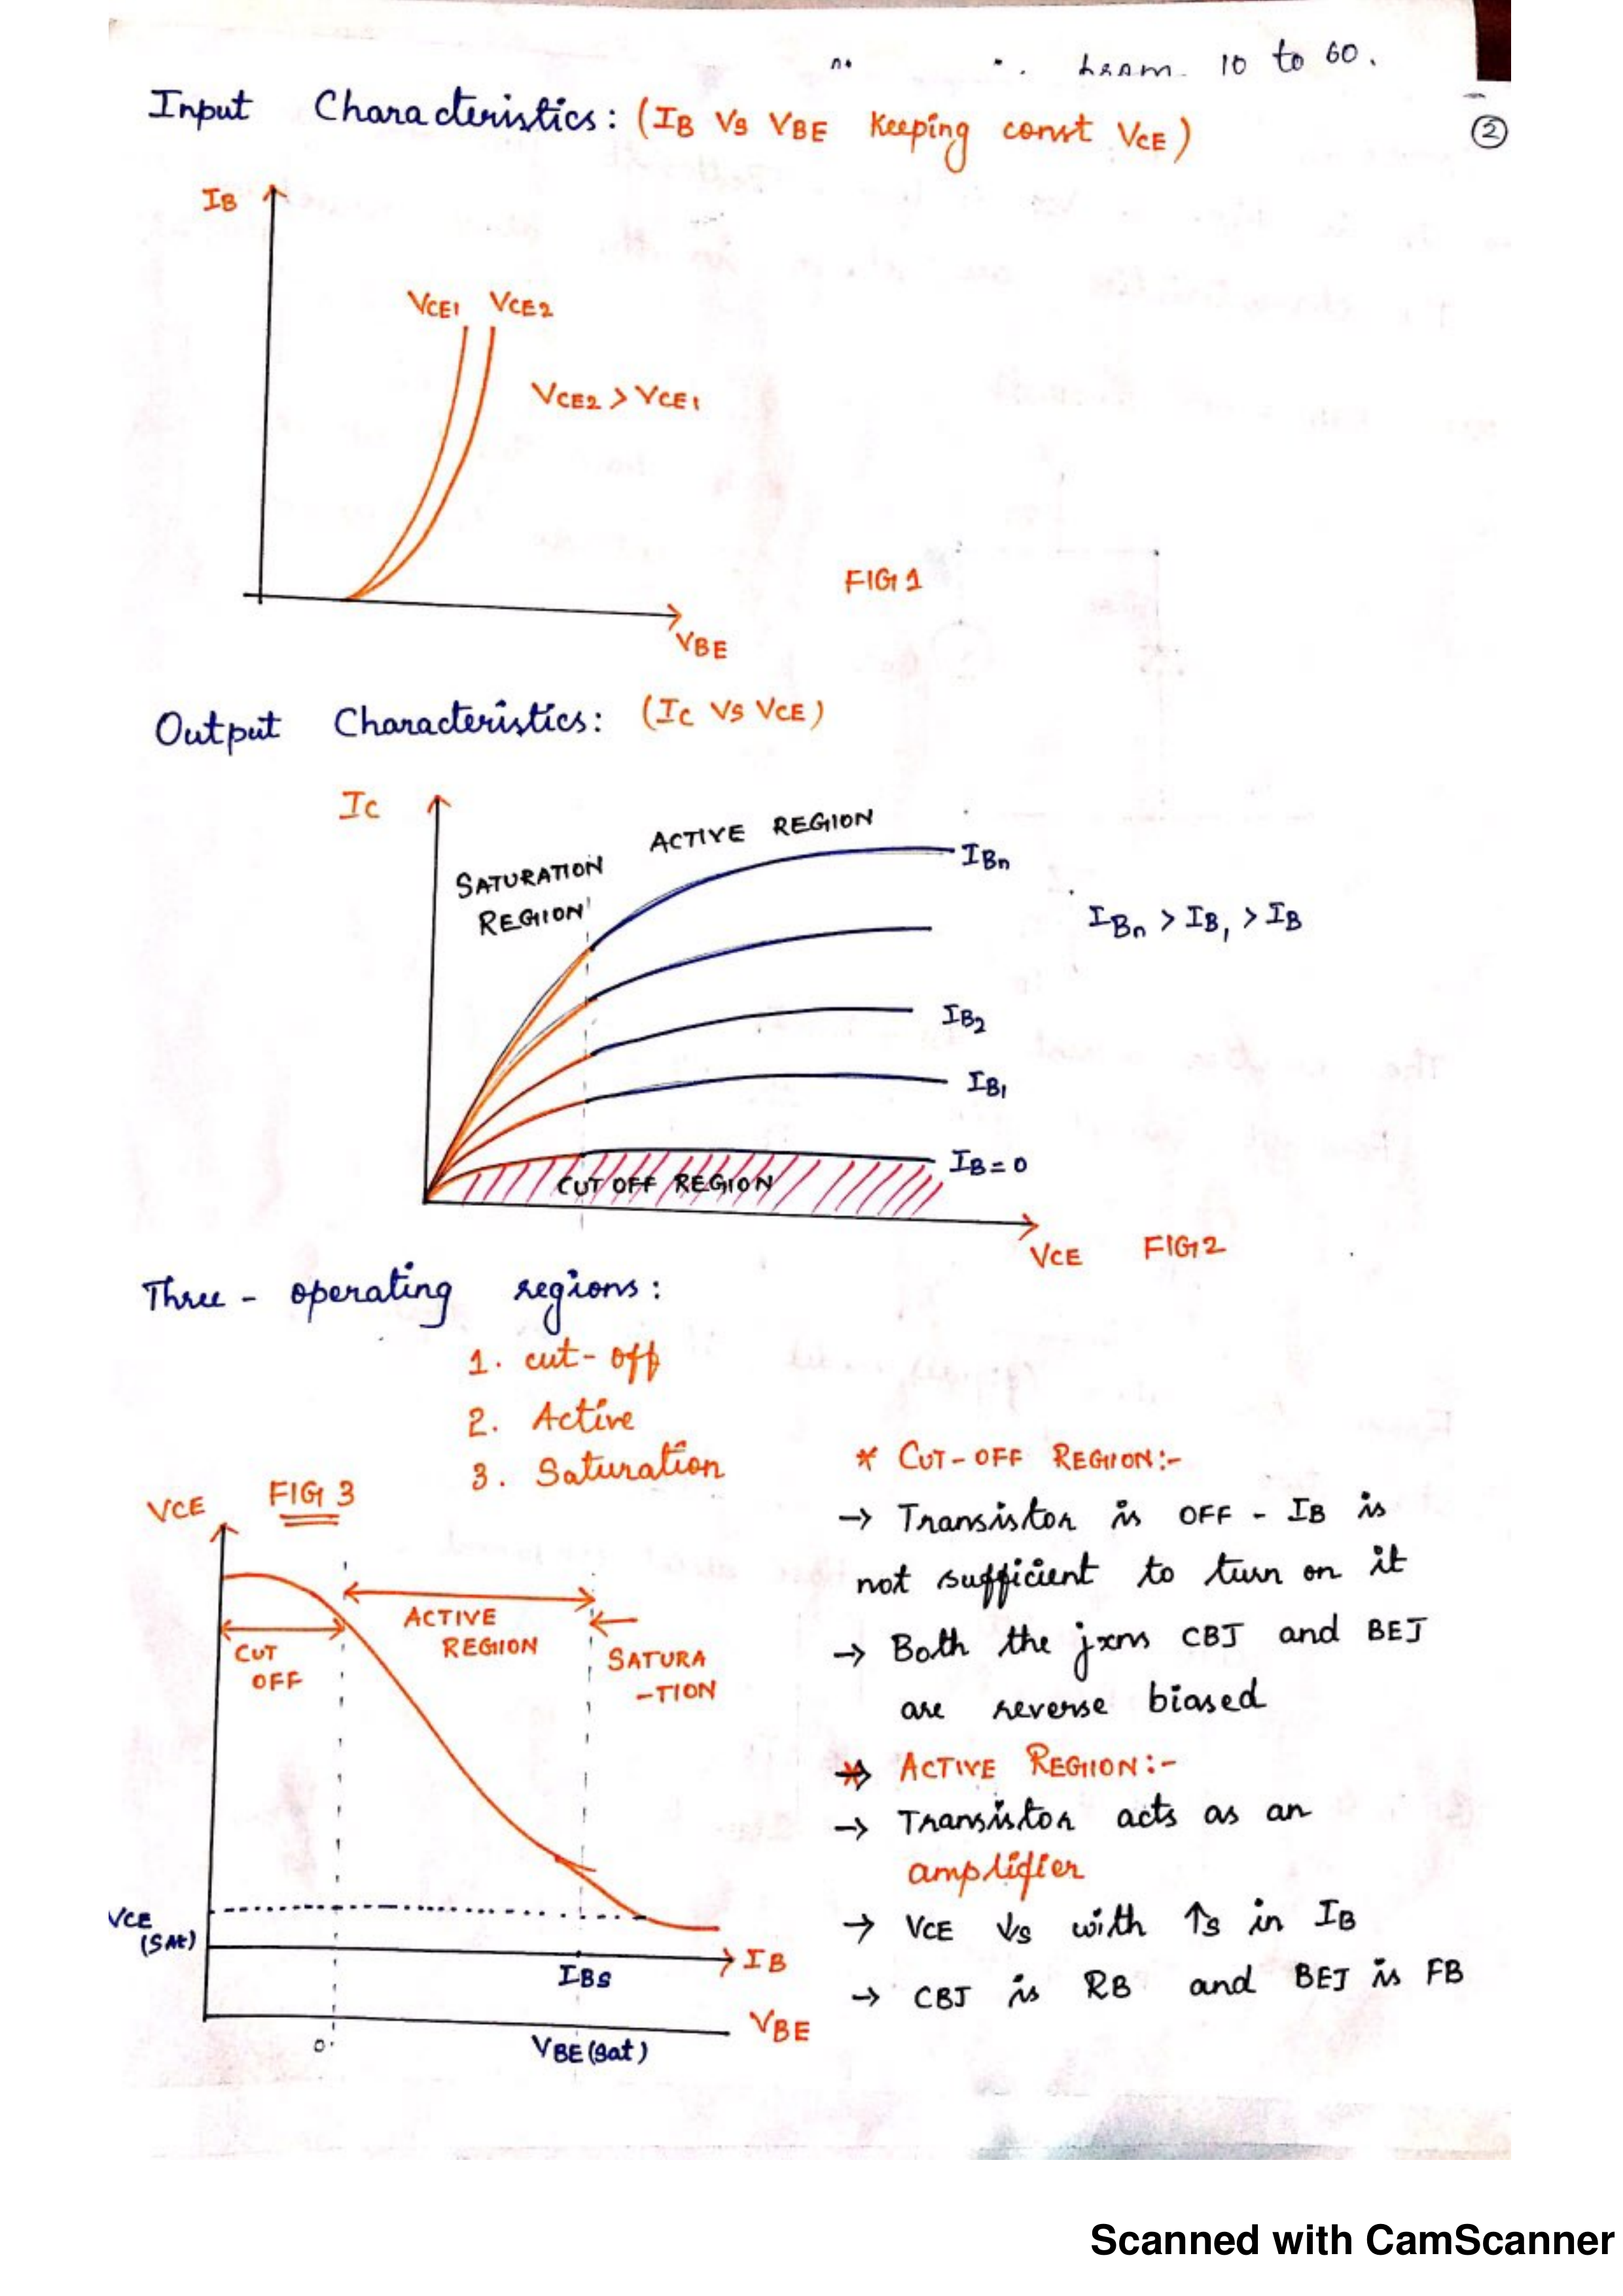 10 to 60.
Input Characteristics: (IB Vs VBE Keeping const VCE)
2
IB
VCE1 VCE2
VCE2 > VCE1
FIG 1
VBE
Output Characteristics: (IC Vs VCE)
IC
ACTIVE REGION
SATURATION
REGION
IBn
IBn > IB1 > IB
IB2
IB1
IB = 0
CUT OFF REGION
VCE
FIG 2
Three - operating regions:
1. cut-off
2. Active
3. Saturation
FIG 3
VCE
ACTIVE
REGION
CUT
OFF
SATURA
-TION
VCE
(SAt)
IB
IBS
VBE
0
VBE (Sat)
* CUT-OFF REGION:-
→ Transistor is OFF - IB is
not sufficient to turn on it
→ Both the jxns CBJ and BEJ
are reverse biased
* ACTIVE REGION:-
→ Transistor acts as an
amplifier
→ VCE ↓s with ↑s in IB
→ CBJ is RB and BEJ is FB
Scanned with CamScanner